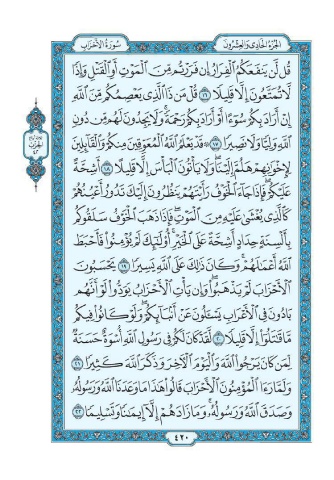 الجزء الحادي والعشرون
سورة الأحزاب
قُل لَّن يَنفَعَكُمُ ٱلْفِرَارُ إِن فَرَرْتُم مِّنَ ٱلْمَوْتِ أَوِ ٱلْقَتْلِ وَإِذًا
لَّا تُمَتَّعُونَ إِلَّا قَلِيلًا ١٦ قُلْ مَن ذَا ٱلَّذِي يَعْصِمُكُم مِّنَ ٱللَّهِ
إِنْ أَرَادَ بِكُمْ سُوٓءًا أَوْ أَرَادَ بِكُمْ رَحْمَةً وَلَا يَجِدُونَ لَهُم مِّن دُونِ
ٱللَّهِ وَلِيًّا وَلَا نَصِيرًا ١٧ ۞ قَدْ يَعْلَمُ ٱللَّهُ ٱلْمُعَوِّقِينَ مِنكُمْ وَٱلْقَآئِلِينَ
لِإِخْوَٰنِهِمْ هَلُمَّ إِلَيْنَا وَلَا يَأْتُونَ ٱلْبَأْسَ إِلَّا قَلِيلًا ١٨ أَشِحَّةً
عَلَيْكُمْ فَإِذَا جَآءَ ٱلْخَوْفُ رَأَيْتَهُمْ يَنظُرُونَ إِلَيْكَ تَدُورُ أَعْيُنُهُمْ
كَٱلَّذِي يُغْشَىٰ عَلَيْهِ مِنَ ٱلْمَوْتِ فَإِذَا ذَهَبَ ٱلْخَوْفُ سَلَقُوكُم
بِأَلْسِنَةٍ حِدَادٍ أَشِحَّةً عَلَى ٱلْخَيْرِ أُو۟لَٰٓئِكَ لَمْ يُؤْمِنُوا۟ فَأَحْبَطَ
ٱللَّهُ أَعْمَٰلَهُمْ وَكَانَ ذَٰلِكَ عَلَى ٱللَّهِ يَسِيرًا ١٩ يَحْسَبُونَ
ٱلْأَحْزَابَ لَمْ يَذْهَبُوا۟ وَإِن يَأْتِ ٱلْأَحْزَابُ يَوَدُّوا۟ لَوْ أَنَّهُم
بَادُونَ فِي ٱلْأَعْرَابِ يَسْـَٔلُونَ عَنْ أَنۢبَآئِكُمْ وَلَوْ كَانُوا۟ فِيكُم
مَّا قَٰتَلُوٓا۟ إِلَّا قَلِيلًا ٢٠ لَّقَدْ كَانَ لَكُمْ فِي رَسُولِ ٱللَّهِ أُسْوَةٌ حَسَنَةٌ
لِّمَن كَانَ يَرْجُوا۟ ٱللَّهَ وَٱلْيَوْمَ ٱلْآخِرَ وَذَكَرَ ٱللَّهَ كَثِيرًا ٢١
وَلَمَّا رَءَا ٱلْمُؤْمِنُونَ ٱلْأَحْزَابَ قَالُوا۟ هَٰذَا مَا وَعَدَنَا ٱللَّهُ وَرَسُولُهُۥ
وَصَدَقَ ٱللَّهُ وَرَسُولُهُۥ وَمَا زَادَهُمْ إِلَّآ إِيمَٰنًا وَتَسْلِيمًا ٢٢
٤٢٠